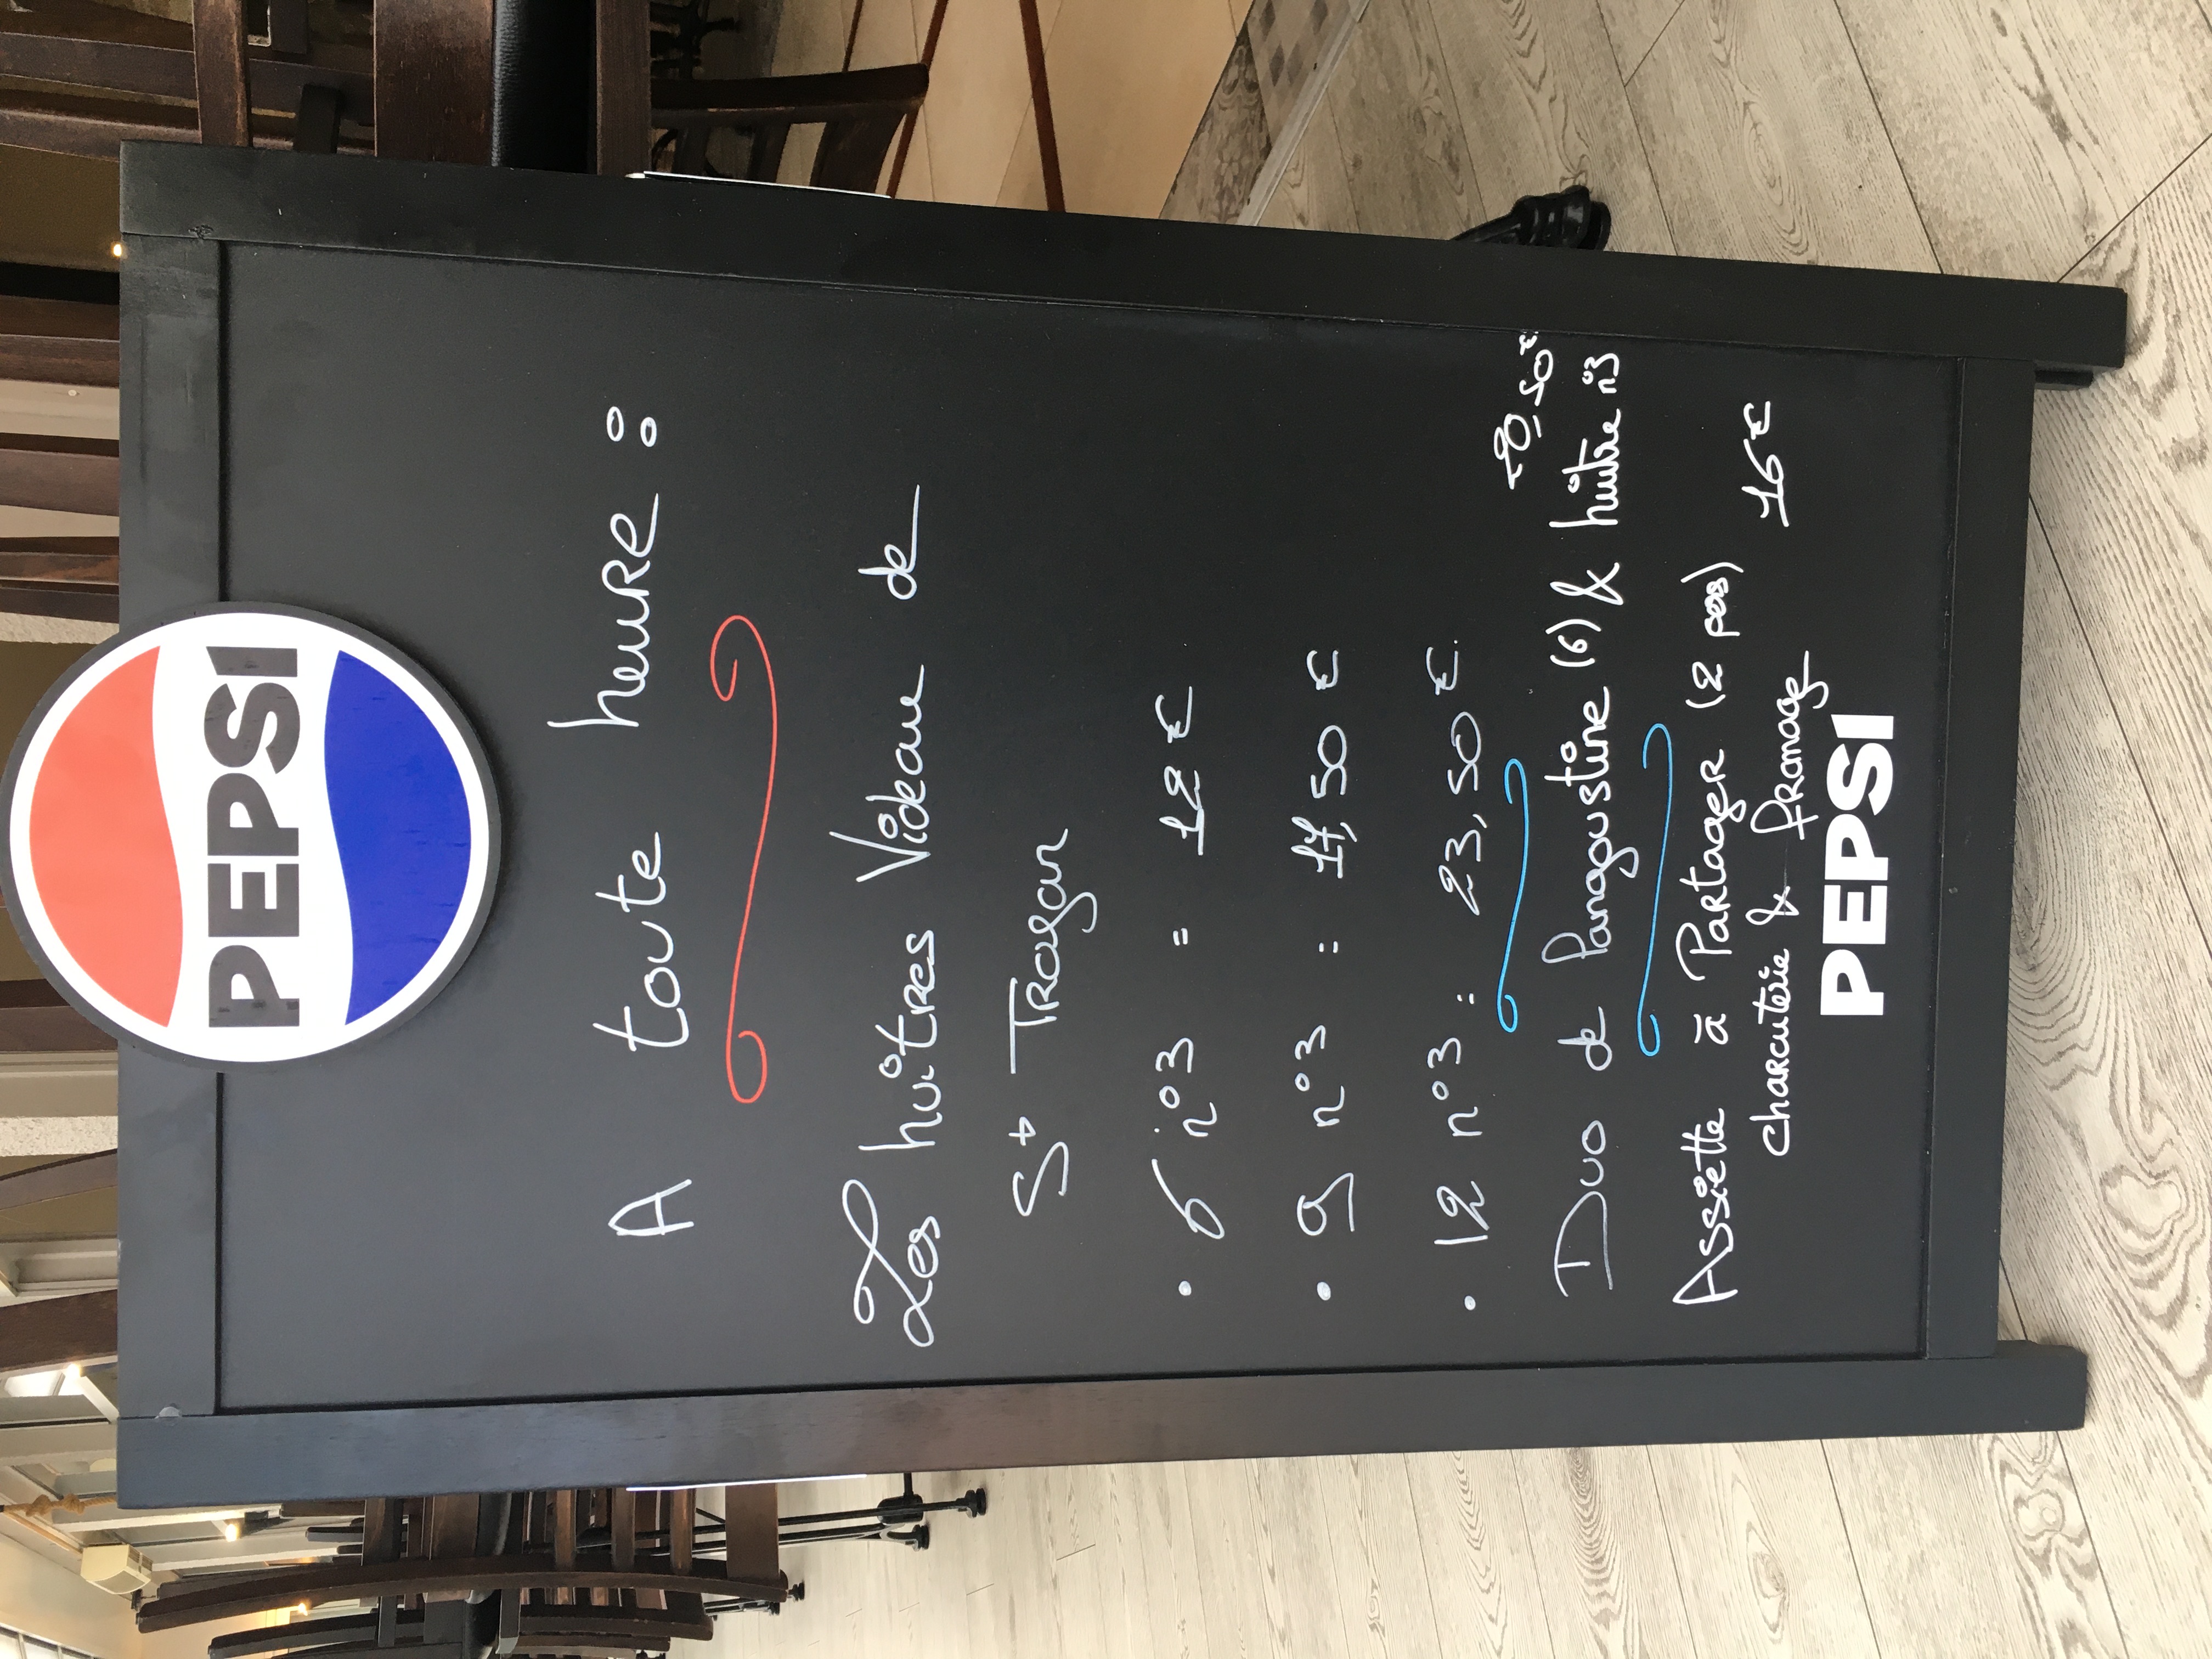 PEPSI
A toute heure :
Les huîtres Videau de
St Trojan
• 6 n°3 = 12 €
• 9 n°3 : 17,50 €
• 12 n°3 : 23,50 €.
20,50€
Duo de Langoustine (6) & huître n°3
Assiette à Partager (2 pers) 16€
charcuterie & fromage
PEPSI